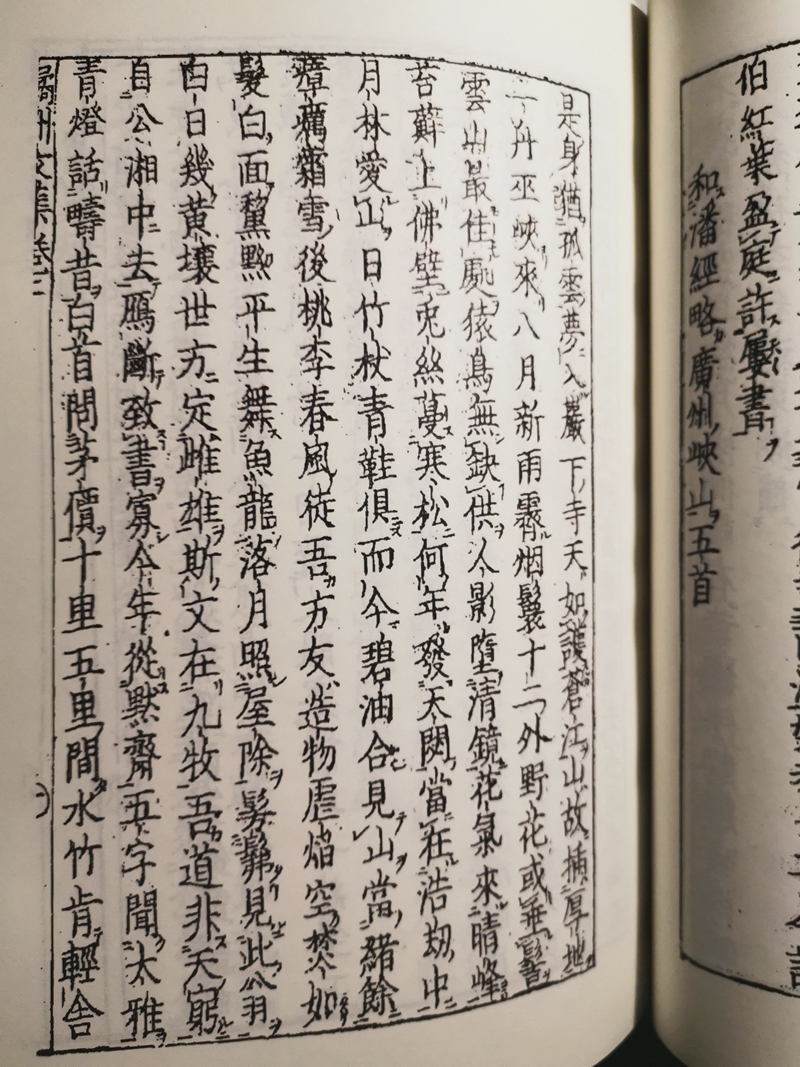 伯紅葉盈庭許屢書
和潘經略廣州峽山五首
是身猶孤雲夢入巖下寺天如護蒼江山故插厚地
一舟巫峽來八月新雨霽烟鬟十二外野花或垂髻
雲山最佳處猿鳥無缺供人影墮清鏡花氣來晴峰
苔蘚上佛壁兎絲蔓寒松何年發天閟當在浩劫中
月林愛山日竹杖青鞋俱而今碧油合見山當緒餘
瘴癘霜雪後桃李春風徒吾方友造物虐焰空焚如
髮白面黧黑平生舞魚龍落月照屋除髣髴見此翁
白日幾黃壤世方定雌雄斯文在九牧吾道非天窮
自公湘中去鴈斷致書寡今年從默齋五字聞大雅
青燈話疇昔白首問茅價十里五里間水竹肯輕舍
橘洲文集卷三